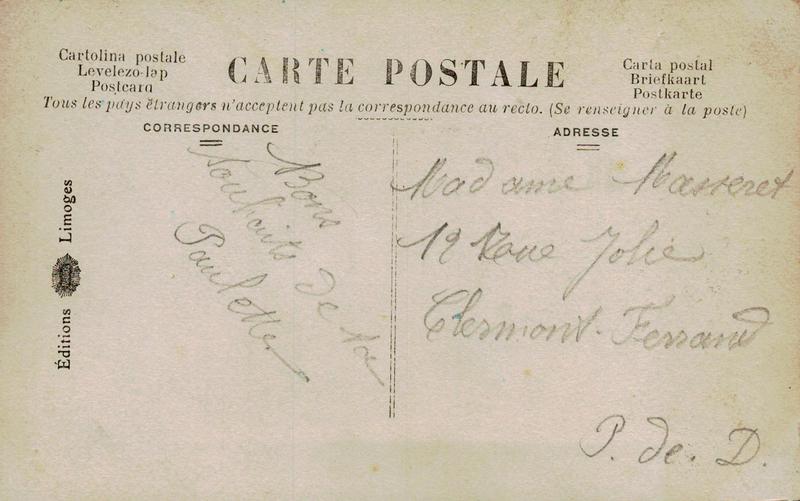 Cartolina postale
Levelezo-lap
Postcard
CARTE POSTALE
Carta postal
Briefkaart
Postkarte
Tous les pays étrangers n'acceptent pas la correspondance au recto. (Se renseigner à la poste)
CORRESPONDANCE
ADRESSE
Éditions Limoges
Bons
Souhaits de ta
Paulette
Madame Masseret
12 Roue Jolie
Clermont-Ferrand
P. de. D.